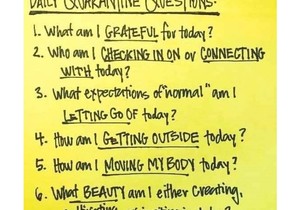 DAILY QUARANTINE QUESTIONS:
1. What am I GRATEFUL for today?
2. Who am I CHECKING IN ON or CONNECTING
WITH today?
3. What expectations of "normal" am I
LETTING GO OF today?
4. How am I GETTING OUTSIDE today?
5. How am I MOVING MY BODY today?
6. What BEAUTY am I either creating,